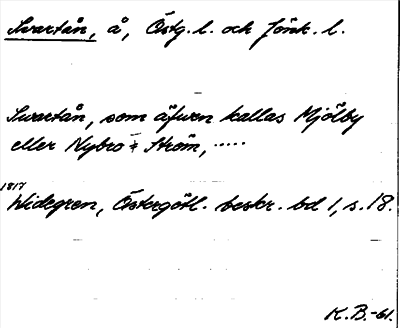 Swartån, å, Östg. l. och Jönk. l.
Swartån, som äfwen kallas Mjölby
eller Nybro = Ström, .....
1817
Widegren, Östergötl. beskr. bd 1, s. 18.
K. B. -61.